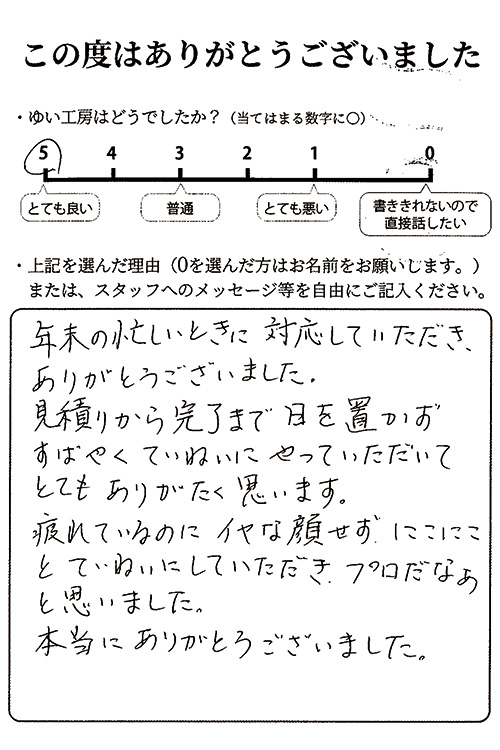 この度はありがとうございました
・ゆい工房はどうでしたか？（当てはまる数字に○）
5 4 3 2 1 0
とても良い 普通 とても悪い 書ききれないので
直接話したい
・上記を選んだ理由（0を選んだ方はお名前をお願いします。）
または、スタッフへのメッセージ等を自由にご記入ください。
年末の忙しいときに 対応していただき、
ありがとうございました。
見積りから完了まで 日を置かず
すばやく ていねいに やっていただいて
とても ありがたく 思います。
疲れているのに イヤな顔せず、にこにこ
と ていねいにしていただき、プロだなぁ
と思いました。
本当に ありがとうございました。